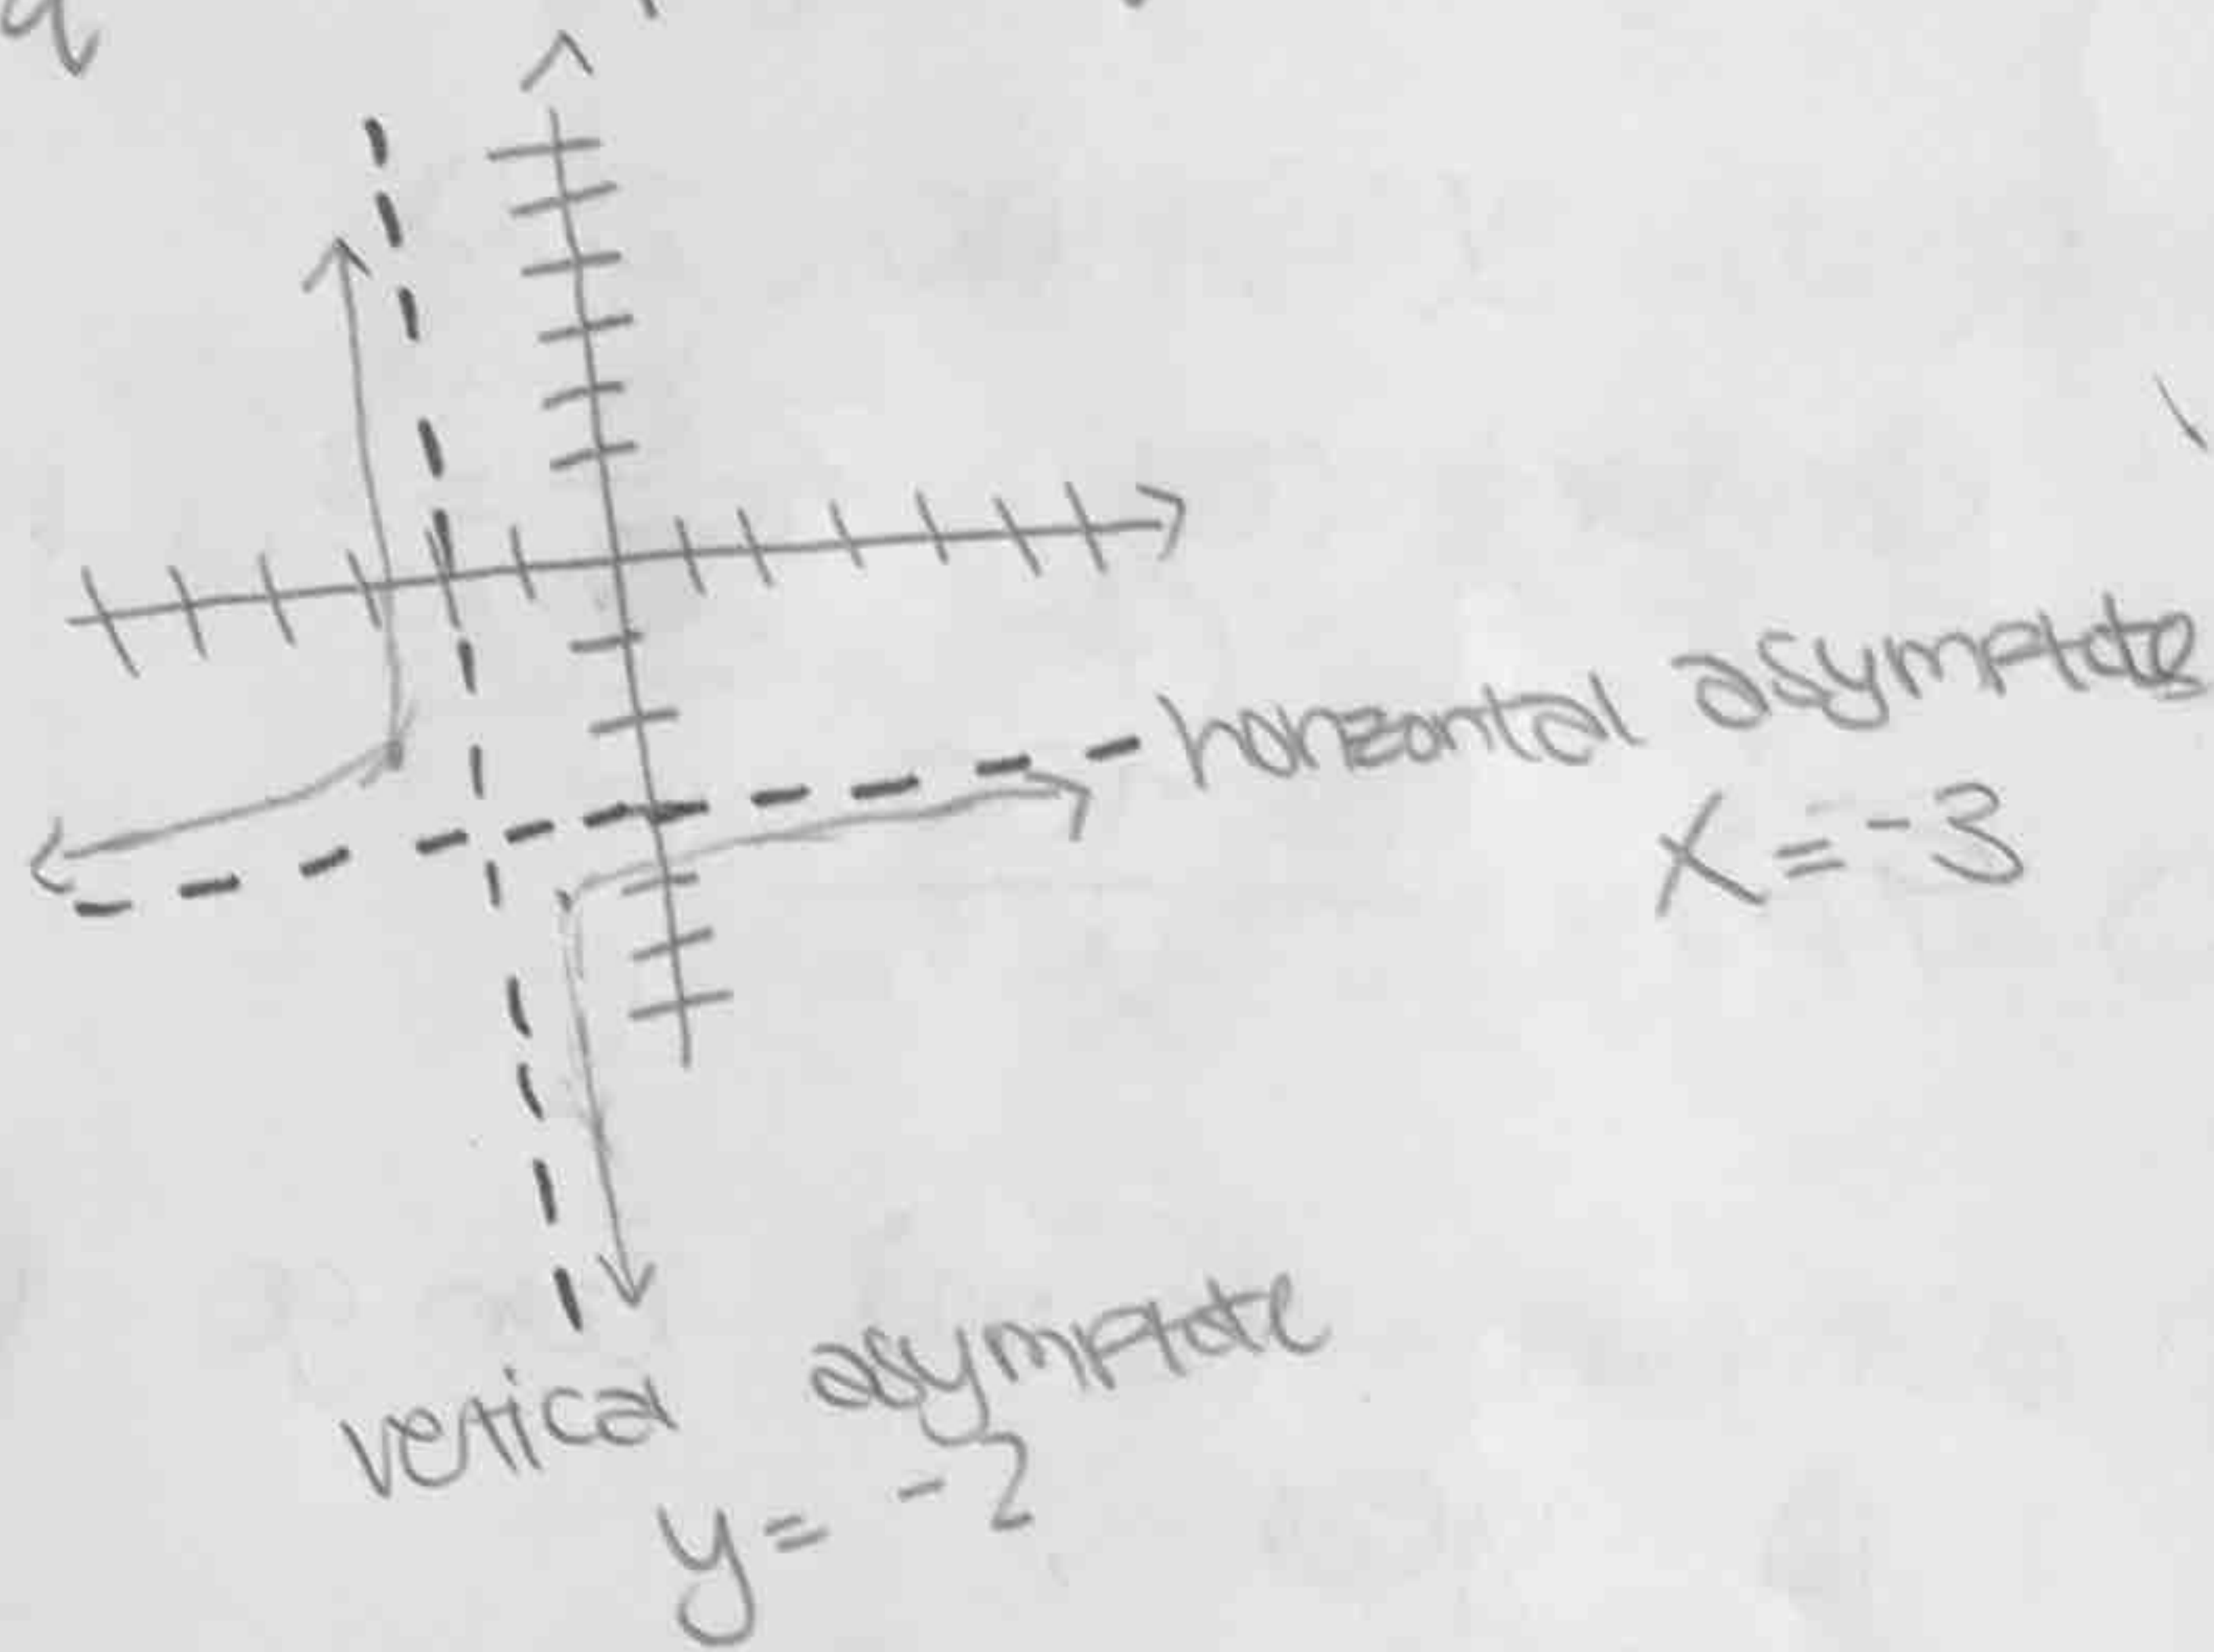 horizontal asymptote
x = -3
vertical asymptote
y = -2